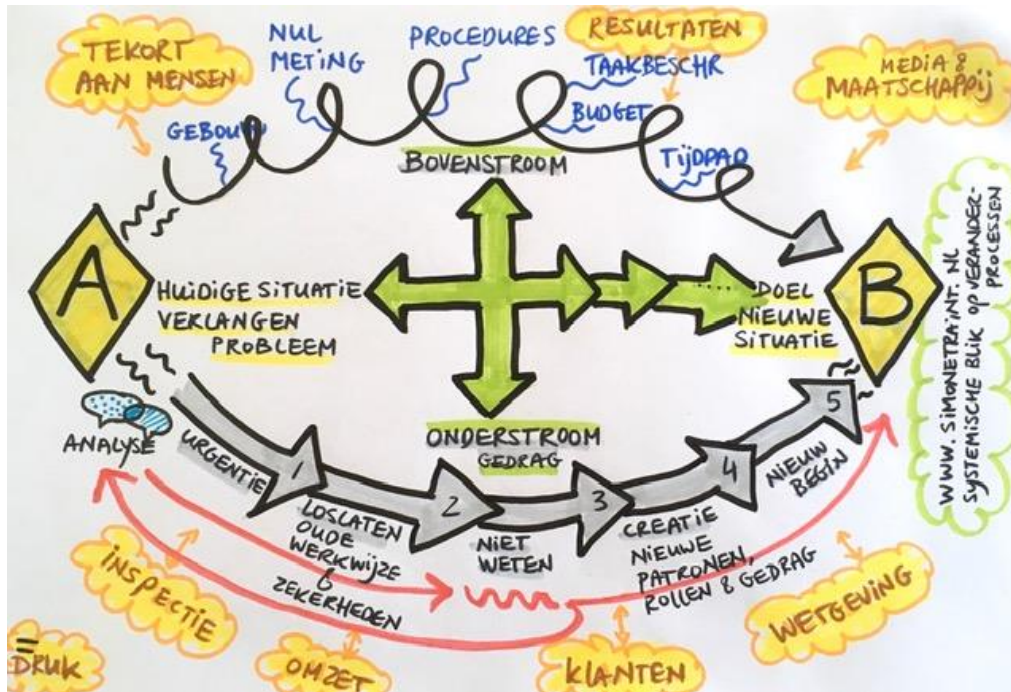 TEKORT
AAN MENSEN
NUL
METING
PROCEDURES
RESULTATEN
TAAKBESCHR
BUDGET
MEDIA &
MAATSCHAPPIJ
GEBOUW
TIJDPAD
BOVENSTROOM
A
HUIDIGE SITUATIE
VERLANGEN
PROBLEEM
DOEL
NIEUWE
SITUATIE
B
WWW.SIMONETRAINT.NL
SYSTEMISCHE BLIK OP VERANDER-
PROCESSEN
ONDERSTROOM
GEDRAG
ANALYSE
URGENTIE
1
LOSLATEN
OUDE
WERKWIJZE
&
ZEKERHEDEN
2
NIET
WETEN
3
CREATIE
NIEUWE
PATRONEN,
ROLLEN & GEDRAG
4
NIEUW
BEGIN
5
INSPECTIE
WETGEVING
= DRUK
OMZET
KLANTEN